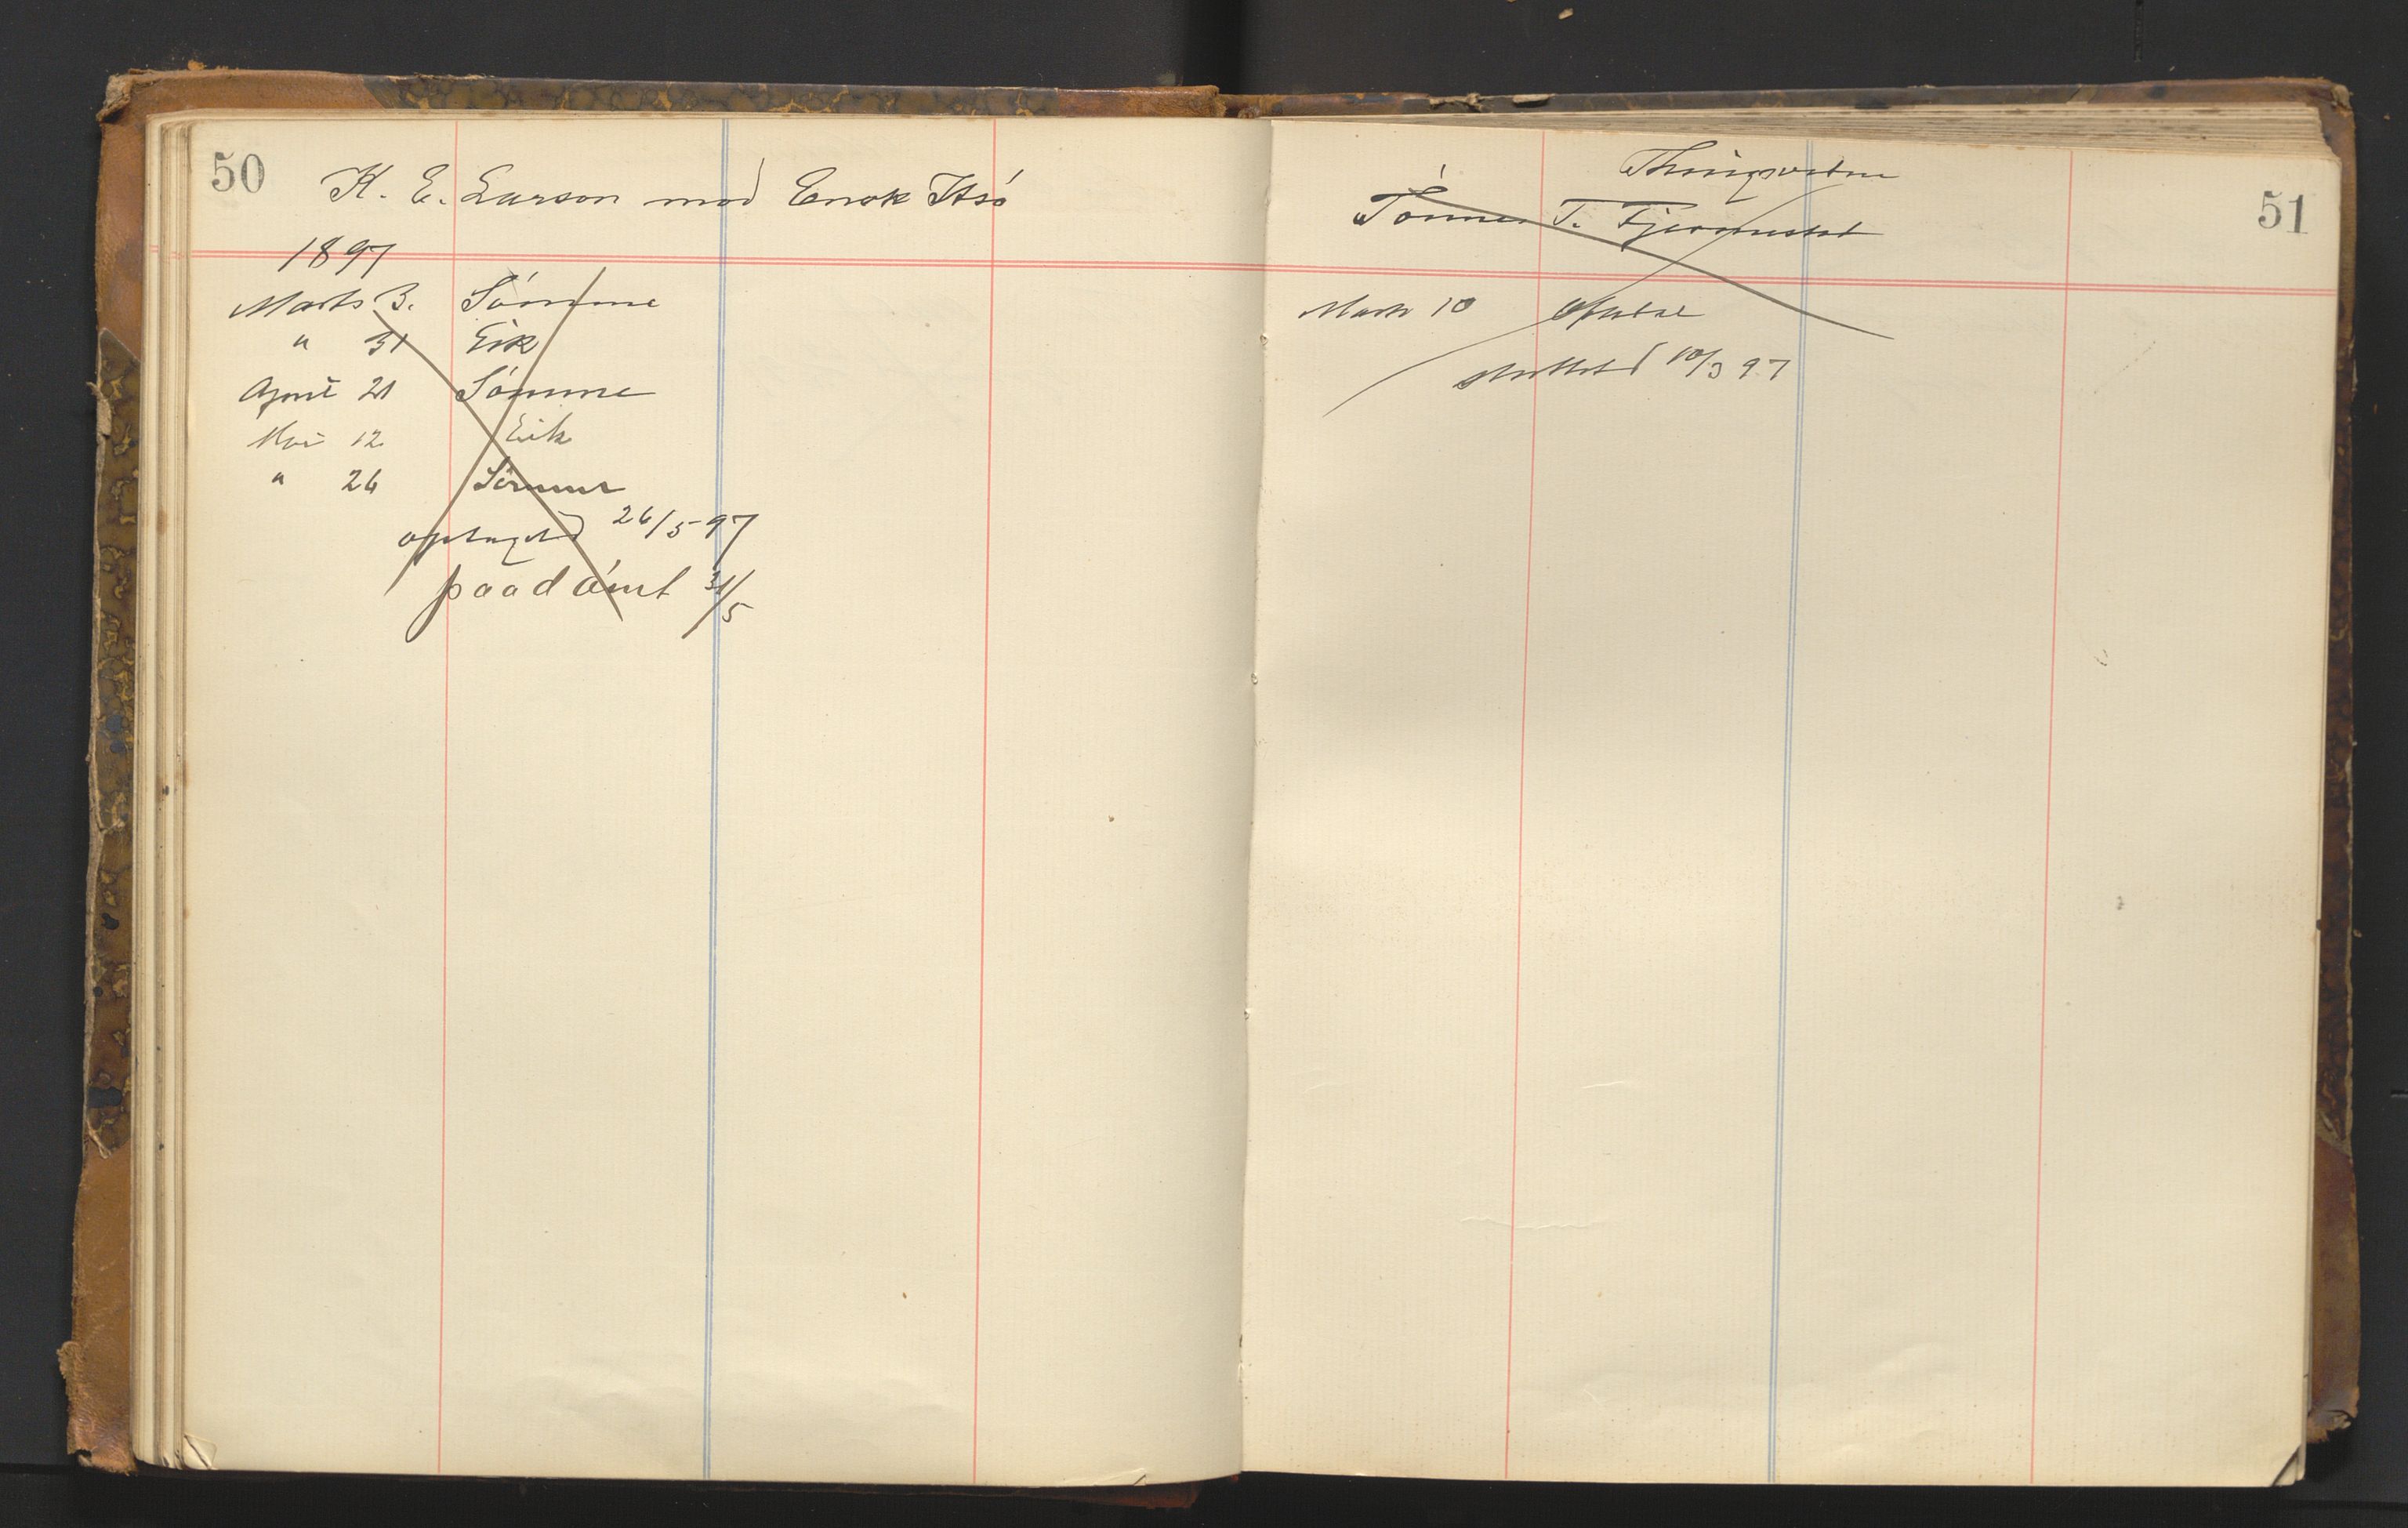 50
K. E. Larson mod Enok Hsö
1897
Marts 3. Sömme
" 31 Eik
April 21 Sömme
Mai 12 Eik
" 26 Sömme
optaget 26/5 97
paadömt 31/5
51
Thingsvidne
Tönnes T.
Marts 10
sluttet 10/3 97